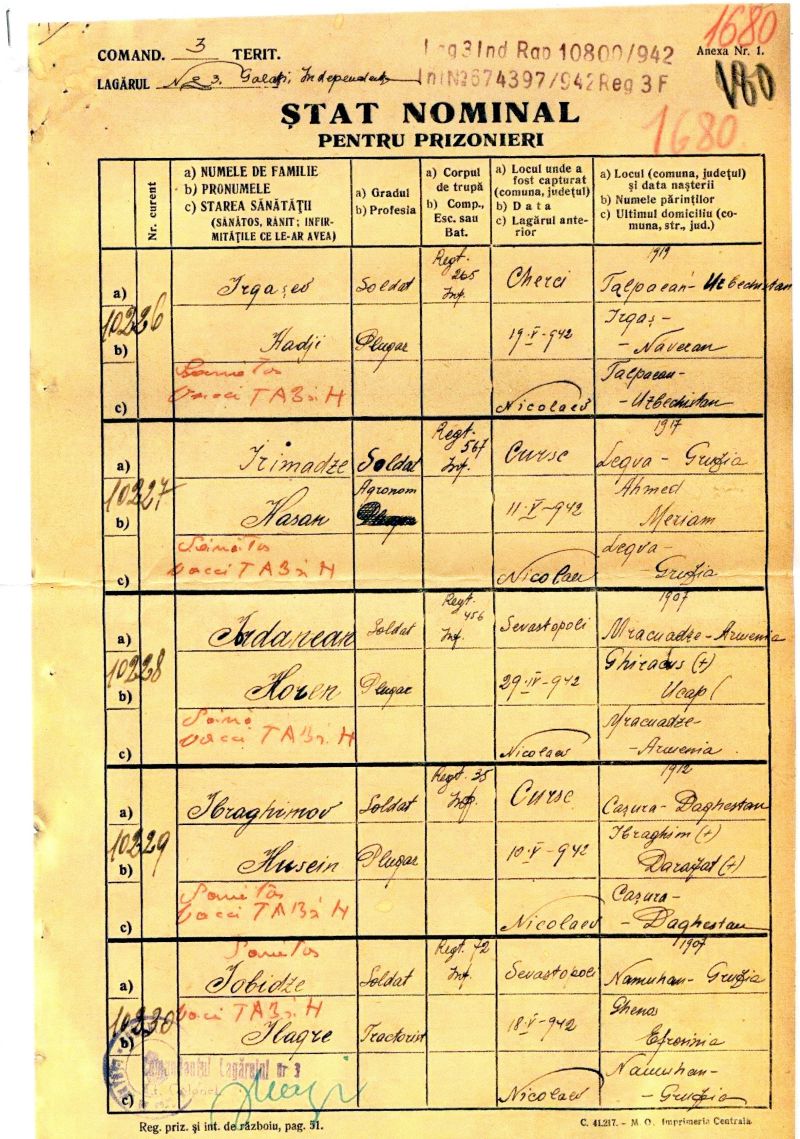 1680
COMAND. 3 TERIT.
Lag 3 Ind Rap 10800/942
Anexa Nr. 1.
LAGĂRUL No 3. Galați, Independența
InI№674397/942 Reg 3 F
180
ȘTAT NOMINAL
PENTRU PRIZONIERI
1680
Nr. curent
a) NUMELE DE FAMILIE
b) PRONUMELE
c) STAREA SĂNĂTĂȚII
(SĂNĂTOS, RĂNIT; INFIR-
MITĂȚILE CE LE-AR AVEA)
a) Gradul
b) Profesia
a) Corpul
de trupă
b) Comp.,
Esc. sau
Bat.
a) Locul unde a
fost capturat
(comuna, județul)
b) Data
c) Lagărul ante-
rior
a) Locul (comuna, județul)
și data nașterii
b) Numele părinților
c) Ultimul domiciliu (co-
muna, str., jud.)
10226
a) Irgașev Soldat Regt. 265 Inf. Cherci 1919 Talpacan - Uzbechistan
b) Hadji Plugar 19·V-942 Irgaș - Naveran
c) Sanatos vacci TAB și H Nicolaev Talpacan - Uzbechistan
10227
a) Irimadze Soldat Regt. 567 Inf. Curse 1917 Legva - Gruzia
b) Hasan Agronom 11·V-942 Ahmed Meriam
c) Sănătos vacci TAB și H Nicolaev Legva - Gruzia
10228
a) Iadanean Soldat Regt. 456 Inf. Sevastopoli 1907 Mracuadze - Armenia
b) Horen Plugar 29·IV-942 Ghiracus (+)
c) Sănă vacci TAB și H Nicolaev Mracuadze - Armenia
10229
a) Ibraghimov Soldat Regt. 35 Inf. Curse 1912 Cașura - Daghestan
b) Husein Plugar 10·V-942 Ibraghim (+) Darajat (+)
c) Sanatos vacci TAB și H Nicolaev Cașura - Daghestan
10230
Sanatos
a) Iobidze Soldat Regt. 72 Inf. Sevastopoli 1907 Namuhan - Gruzia
vacci TAB și H
b) Ilagre Tractorist 18·V-942 Ghenas Efrosinia
Comandantul Lagărului nr 3
Lt. Colonel
c) Nicolaev Namuhan - Gruzia
Reg. priz. și int. de războiu, pag. 51.
C. 41.217. – M. O. Imprimeria Centrala.